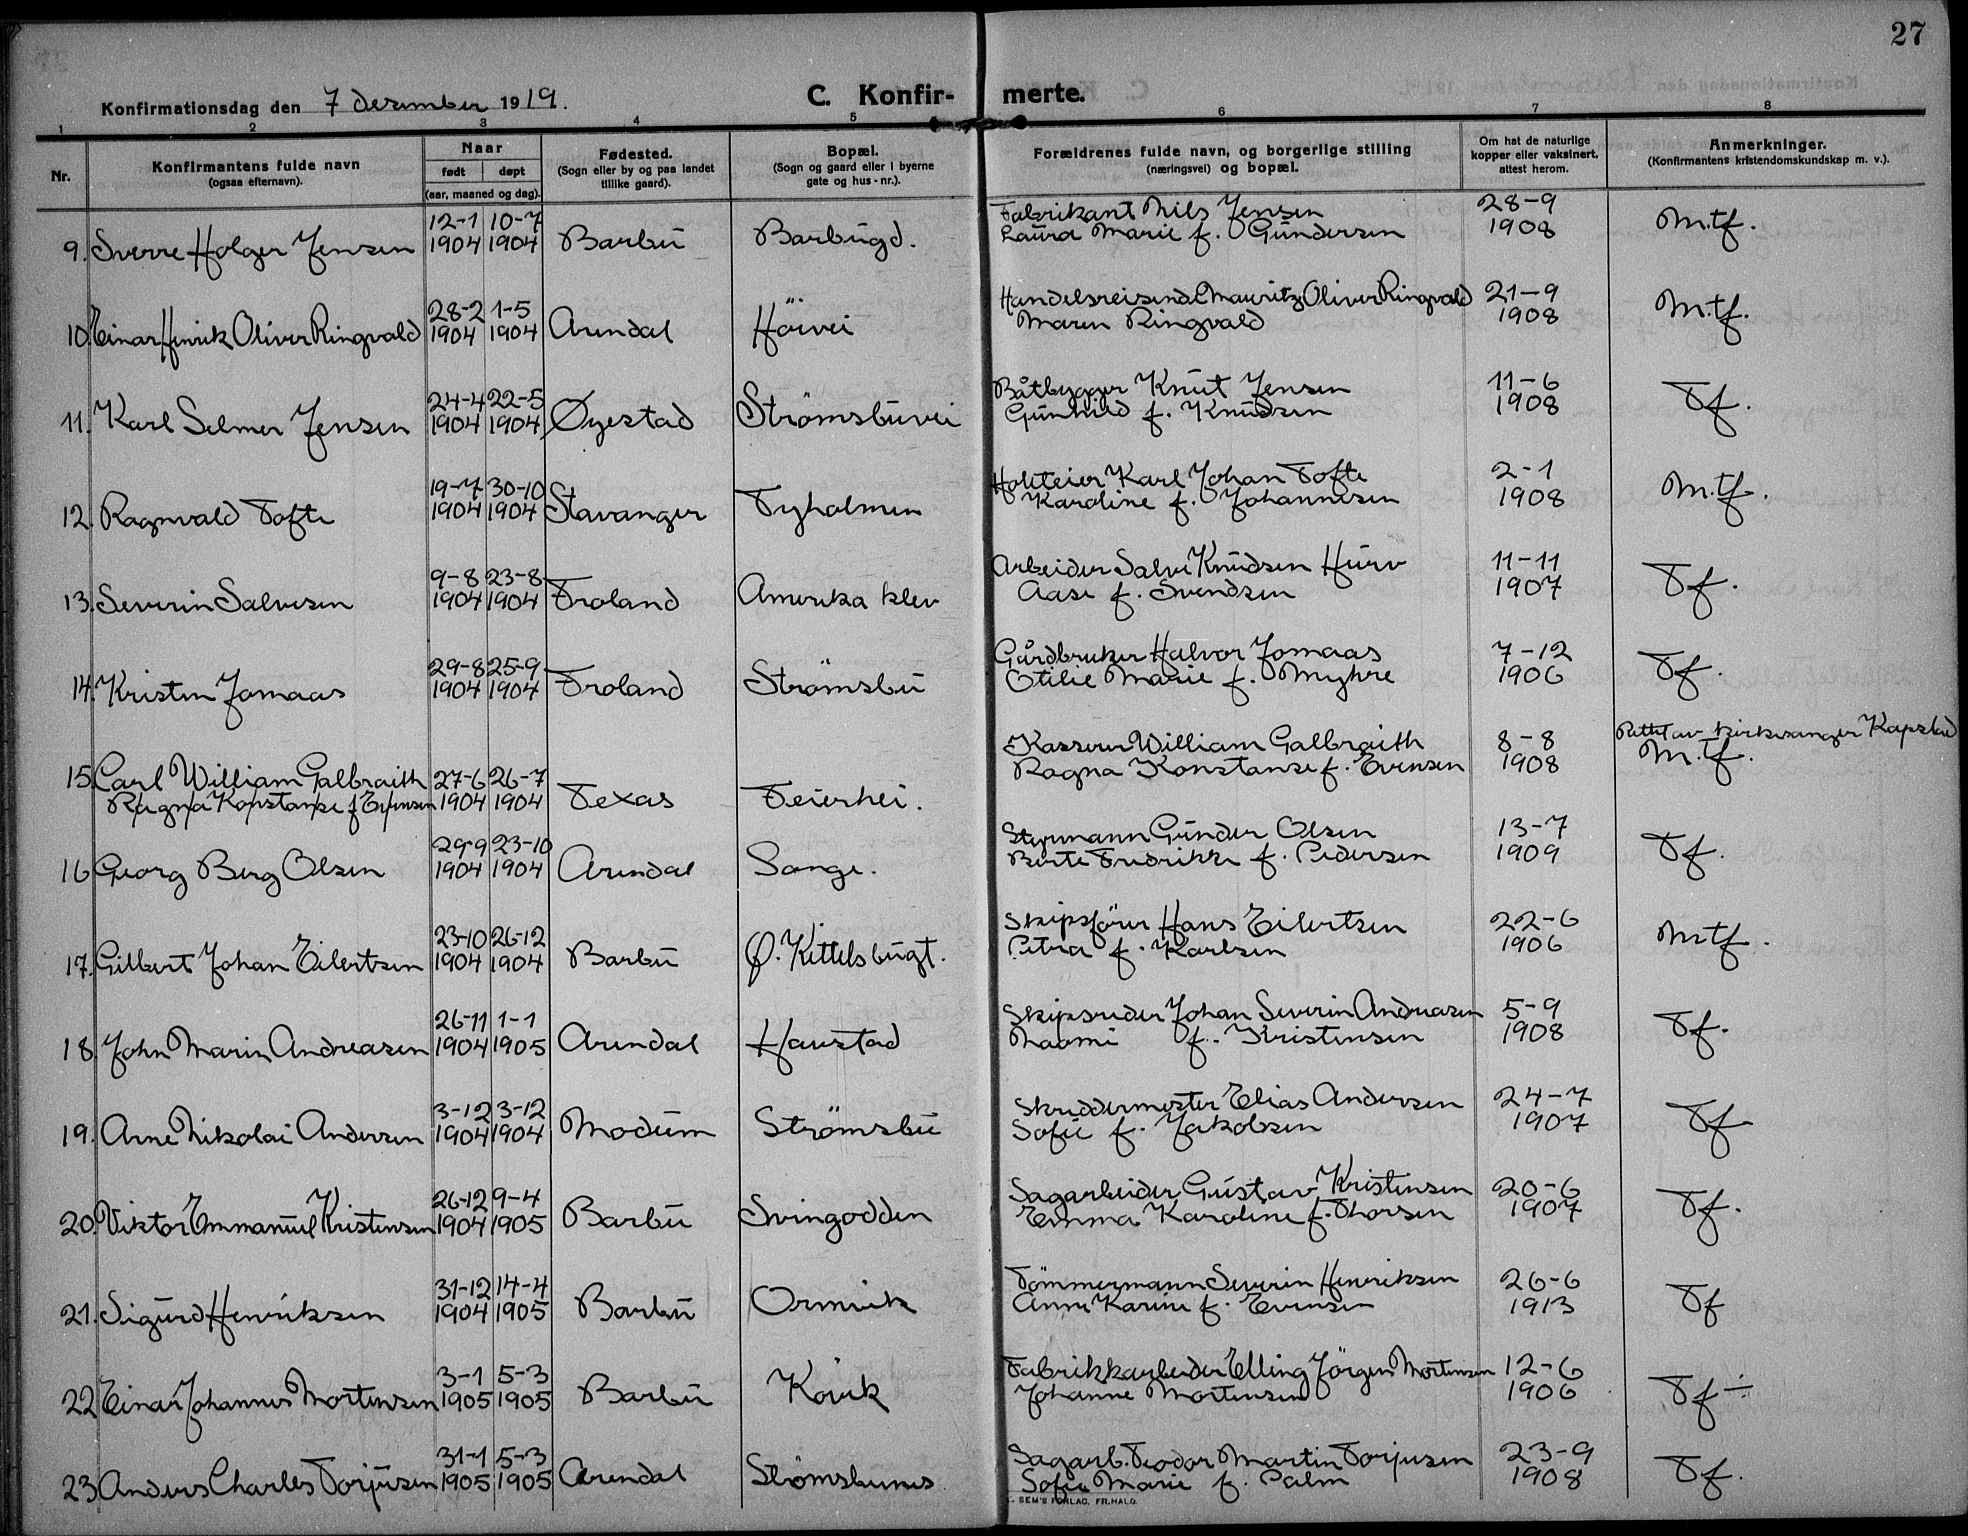 27
Konfirmationsdag den 7 desember 1919.
C. Konfir- merte.
1 2 3 4 5 6 7 8
Nr.
Konfirmantens fulde navn
(ogsaa efternavn).
Naar
født døpt
(aar, maaned og dag).
Fødested.
(Sogn eller by og paa landet
tillike gaard).
Bopæl.
(Sogn og gaard eller i byerne
gate og hus-nr.).
Forældrenes fulde navn, og borgerlige stilling
(næringsvei) og bopæl.
Om hat de naturlige
kopper eller vaksinert,
attest herom.
Anmerkninger.
(Konfirmantens kristendomskundskap m. v.).
12-1 10-7 Fabrikant Nils Jensen 28-9
9. Sverre Holger Jensen 1904 1904 Barbu Barbugd. Laura Marie f. Gundersen 1908 M.tf.
28-2 1-5 Handelsreisende Mauritz Oliver Ringvald 21-9
10. Einar Henrik Oliver Ringvald 1904 1904 Arendal Höivei Maren Ringvald 1908 M.tf.
24-4 22-5 Båtbygger Knut Jensen 11-6
11. Karl Selmer Jensen 1904 1904 Øyestad Strömsbuvei Gunhild f. Knudsen 1908 Tf.
19-7 30-10 Karl Johan Tofte 2-1
12. Ragnvald Tofte 1904 1904 Stavanger Tyholmen Karoline f. Johannesen 1908 M.tf.
9-8 23-8 Arbeider Salve Knudsen Hurv 11-11
13. Severin Salvesen 1904 1904 Froland Amerika klev Aase f. Svendsen 1907 Tf.
29-8 25-9 Gårdbruker Halvor Jomaas 7-12
14. Kristen Jomaas 1904 1904 Froland Strömsbu Otilie Marie f. Myhre 1906 Tf.
Rettet av kirkesanger Kapstad
Kasserer William Galbraith 8-8 M.tf.
15. Carl William Galbraith 27-6 26-7 Ragna Konstanse f. Evensen 1908
Ragna Konstanse f Evensen 1904 1904 Texas Feierhei.
29-9 23-10 Styrmann Gunder Olsen 13-7
16 Georg Berg Olsen 1904 1904 Arendal Songe. Berte Fredrikke f. Pedersen 1909 Tf.
23-10 26-12 Skipsförer Hans Eilertsen 22-6
17. Gilbert Johan Eilertsen 1904 1904 Barbu Ø. Kittelsbugt. Petra f. Karlsen 1906 Mtf.
26-11 1-1 Skipsreder Johan Severin Andreasen 5-9
18. John Marin Andreasen 1904 1905 Arendal Haustad Naomi f. Kristensen 1908 Tf.
3-12 3-12 Skreddermester Elias Andersen 24-7
19. Arne Nikolai Andersen 1904 1904 Modum Strömsbu Sofie f. Jakobsen 1907 Tf
26-12 9-4 Sagarbeider Gustav Kristensen 20-6
20. Viktor Emmanuel Kristensen 1904 1905 Barbu Svingodden Emma Karoline f. Thorsen 1907 Tf.
31-12 14-4 Tömmermann Severin Henriksen 26-6
21. Sigurd Henriksen 1904 1905 Barbu Ormvik Anne Karine f. Evensen 1913 Tf
3-1 5-3 Fabrikkarbeider Elling Jörgen Mortensen 12-6
22 Einar Johannes Mortensen 1905 1905 Barbu Kövik Johanne Mortensen 1906 Tf ÷
31-1 5-3 Sagarb. Teodor Martin Torjusen 23-9
23 Anders Charles Torjusen 1905 1905 Arendal Strömsbunes Sofie Marie f. Palm 1908 Tf.
SEM'S FORLAG, FR.HALD.